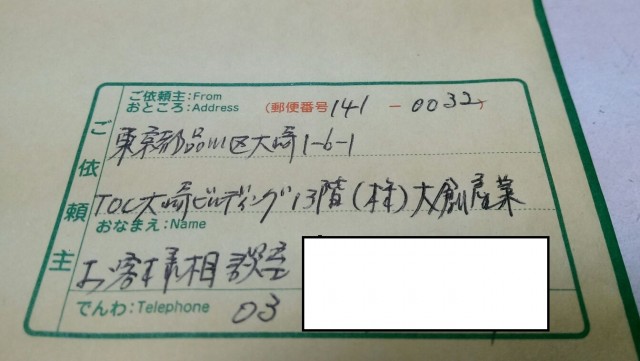 ご依頼主:From
おところ:Address (郵便番号 141 - 0032)
東京都品川区大崎1-6-1
TOC大崎ビルディング13階 (株) 大創産業
おなまえ:Name
お客様相談室
でんわ:Telephone 03
ご依頼主